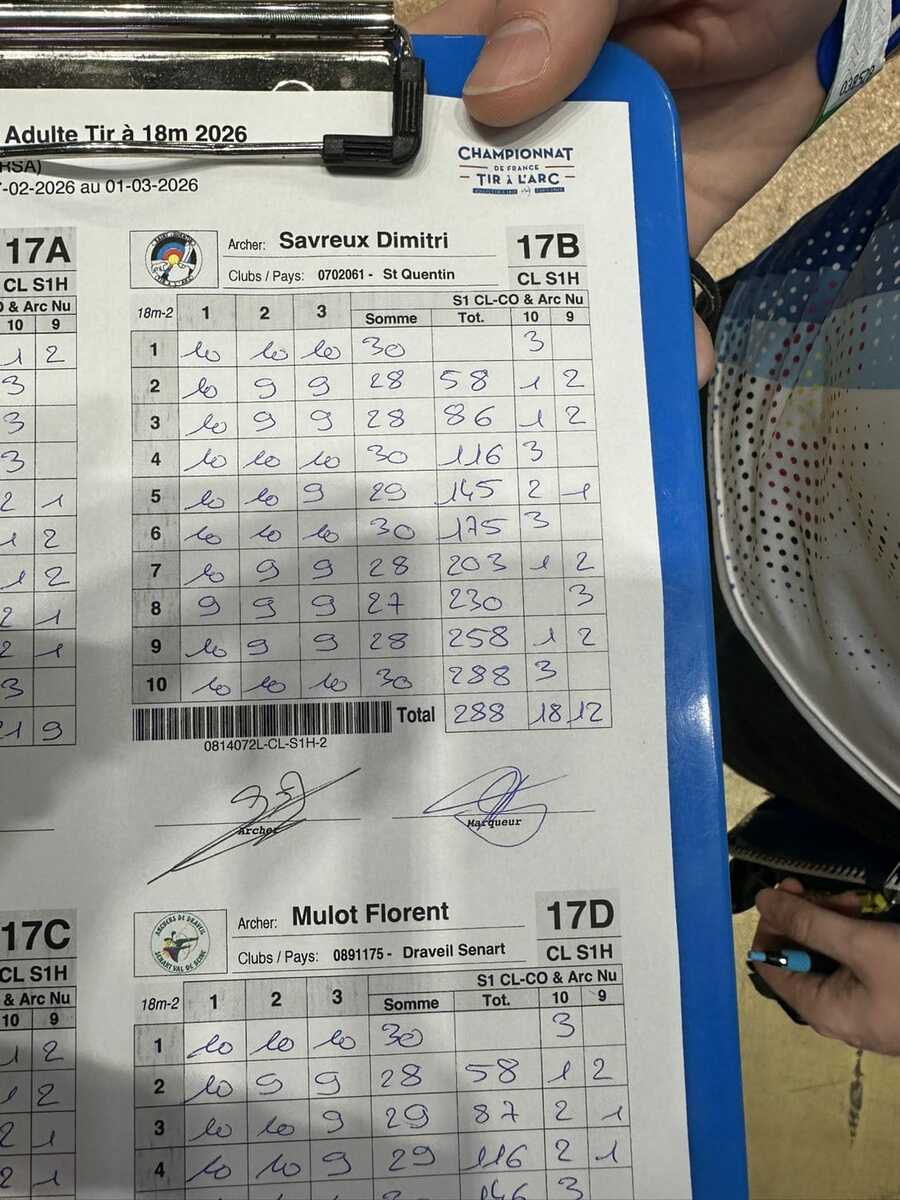 Adulte Tir à 18m 2026
RSA)
-02-2026 au 01-03-2026
CHAMPIONNAT
DE FRANCE
TIR À L'ARC
17A
CL S1H
& Arc Nu
10 9
1 2
3
3
3
2 1
1 2
1 2
2 1
2 1
3
21 9
Archer: Savreux Dimitri 17B
Clubs / Pays: 0702061 - St Quentin CL S1H
S1 CL-CO & Arc Nu
18m-2 1 2 3 Somme Tot. 10 9
1 10 10 10 30 3
2 10 9 9 28 58 1 2
3 10 9 9 28 86 1 2
4 10 10 10 30 116 3
5 10 10 9 29 145 2 1
6 10 10 10 30 175 3
7 10 9 9 28 203 1 2
8 9 9 9 27 230 3
9 10 9 9 28 258 1 2
10 10 10 10 30 288 3
Total 288 18 12
0814072L-CL-S1H-2
Archer Marqueur
17C
CL S1H
& Arc Nu
10 9
1 2
1 2
2 1
2 1
ARCHERS DE DRAVEIL
SENART VAL DE SEINE
Archer: Mulot Florent 17D
Clubs / Pays: 0891175 - Draveil Senart CL S1H
S1 CL-CO & Arc Nu
18m-2 1 2 3 Somme Tot. 10 9
1 10 10 10 30 3
2 10 9 9 28 58 1 2
3 10 10 9 29 87 2 1
4 10 10 9 29 116 2 1
146 3